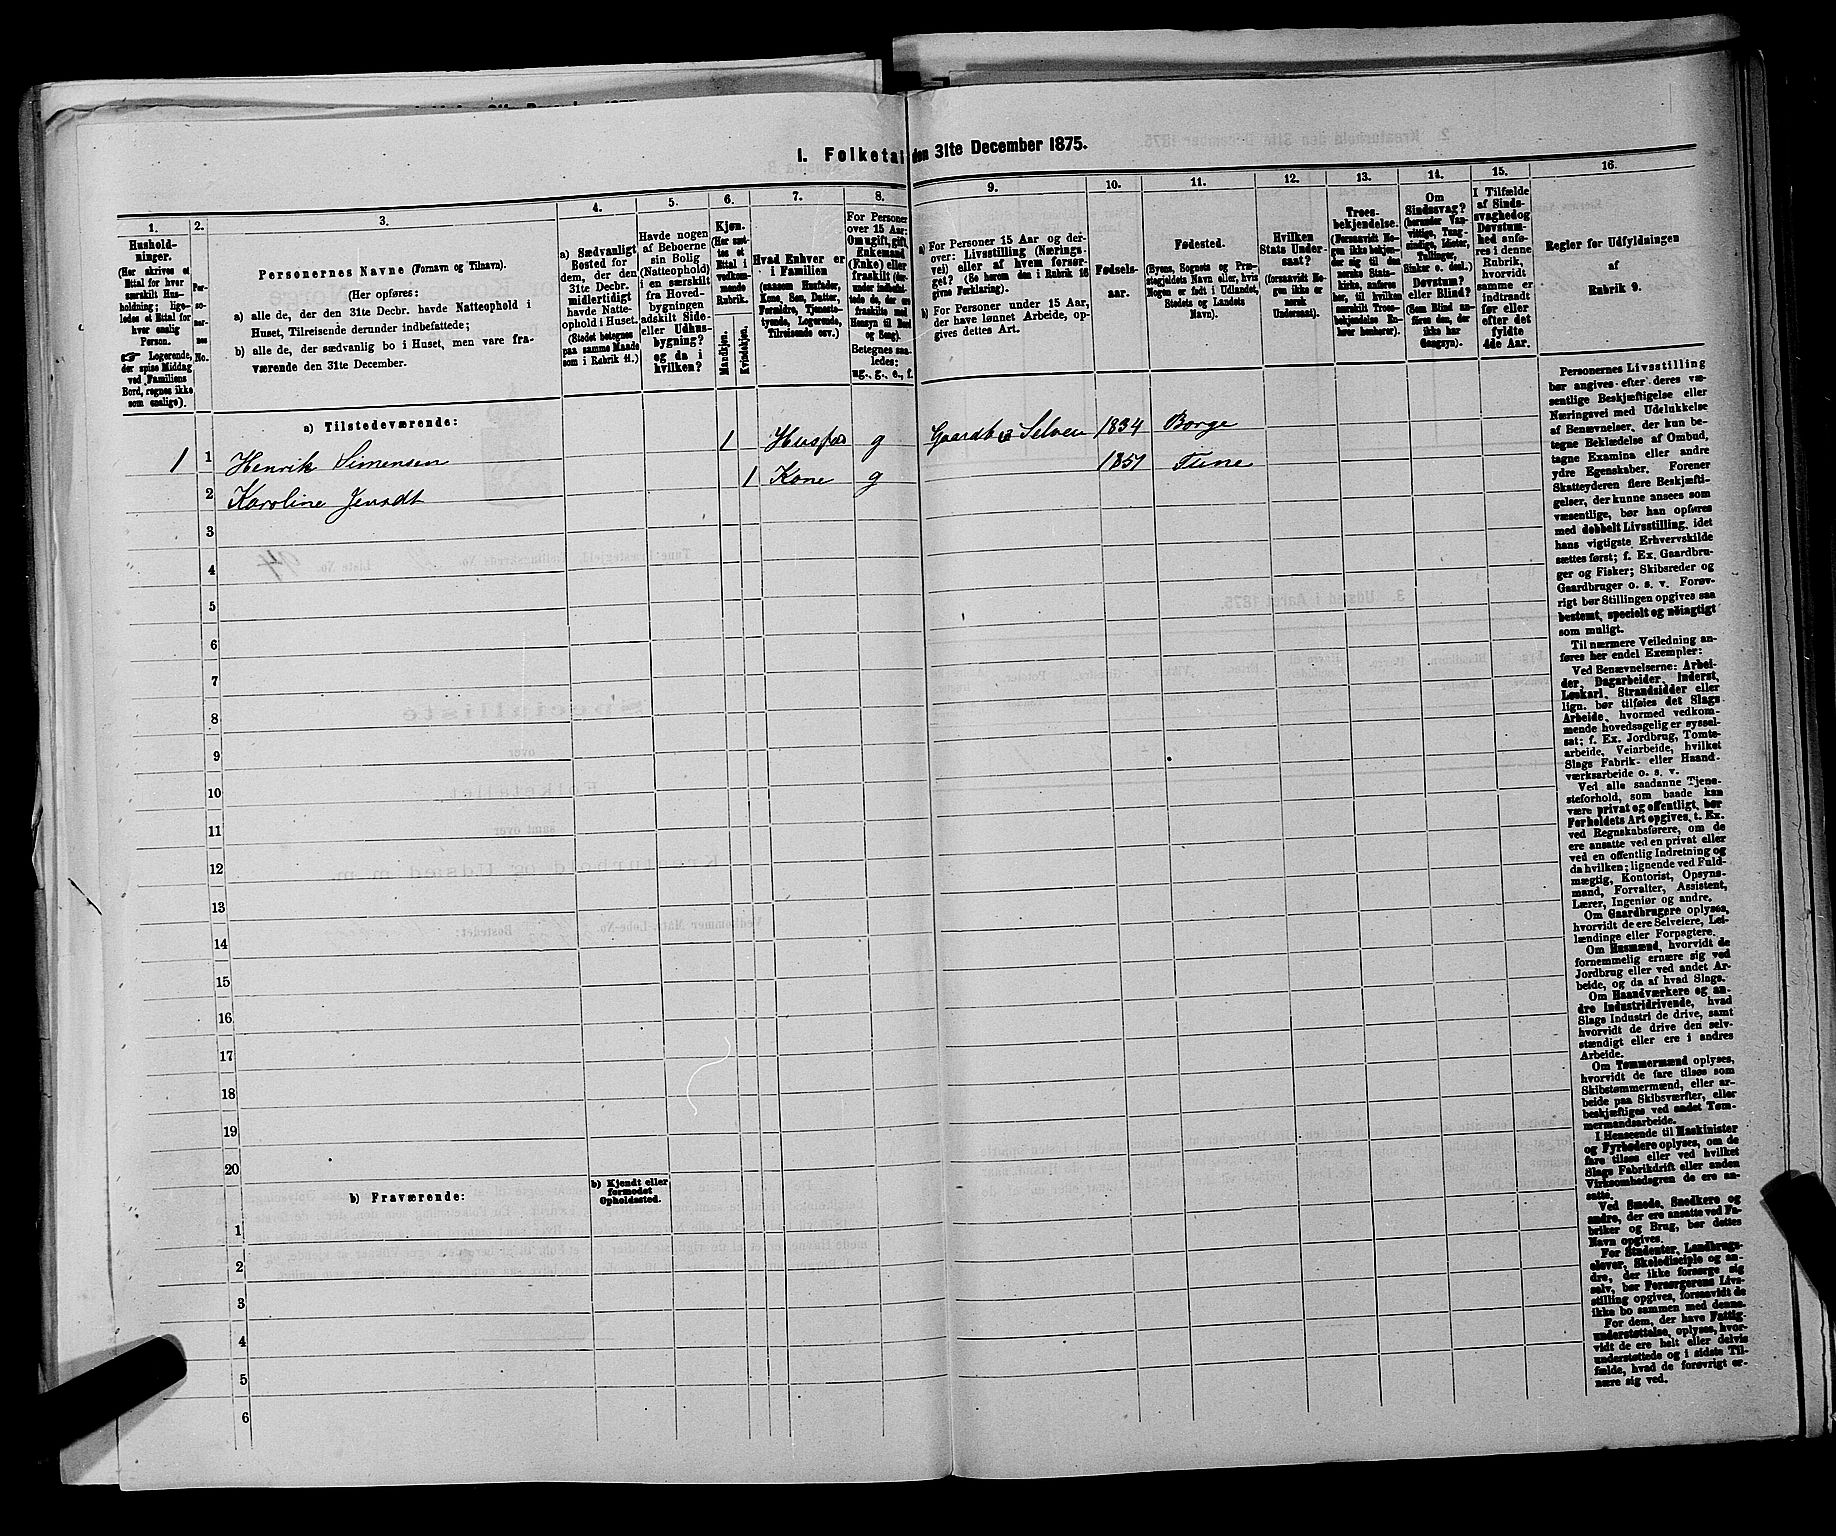 I. Folketal den 31te December 1875.
1.
Hushold-
ninger.
(Her skrives et
Ettal for hver
særskilt Hus-
holdning; lige-
ledes et Ettal for
hver enslig
Person.
☞ Logerende,
der spise Middag
ved Familiens
Bord, regnes ikke
som enslige).
2.
Per-
so-
ner-
nes
No.
3.
Personernes Navne (Fornavn og Tilnavn).
(Her opføres:
a) alle de, der den 31te Decbr. havde Natteophold i
Huset, Tilreisende derunder indbefattede;
b) alle de, der sædvanlig bo i Huset, men vare fra-
værende den 31te December.
4.
a) Sædvanligt
Bosted for
dem, der den
31te Decbr.
midlertidigt
havde Natte-
ophold i Huset.
(Stedet betegnes
paa samme Maade
som i Rubrik 11.)
5.
Havde nogen
af Beboerne
sin Bolig
(Natteophold)
i en særskilt
fra Hoved-
bygningen
adskilt Side-
eller Udhus-
bygning?
og da i
hvilken?
6.
Kjøn.
(Her sæt-
tes et
Ettal i
vedkom-
mende
Rubrik.
Mandkjøn.
Kvindekjøn.
7.
Hvad Enhver er
i Familien
(saasom Husfader,
Kone, Søn, Datter,
Forældre, Tjeneste-
tyende, Logerende,
Tilreisende osv.)
8.
For Personer
over 15 Aar:
Om ugift, gift,
Enkemand
(Enke) eller
fraskilt (der-
under indbefat-
tede de, der ere
fraskilte med
Hensyn til Bord
og Seng).
Betegnes saa-
ledes:
ug., g., e., f.
9.
a) For Personer 15 Aar og der-
over: Livsstilling (Nærings-
vei) eller af hvem forsør-
get? (Se herom den i Rubrik 16
givne Forklaring).
b) For Personer under 15 Aar,
der have lønnet Arbeide, op-
gives dettes Art.
10.
Fødsels-
aar.
11.
Fødested.
(Byens, Sognets og Præ-
stegjeldets Navn eller, hvis
Nogen er født i Udlandet,
Stedets og Landets
Navn).
12.
Hvilken
Stats Under-
saat?
(forsaavidt No-
gen ikke er
norsk
Undersaat).
13.
Troes-
bekjendelse.
(Forsaavidt No-
gen ikke bekjen-
der sig til den
norske Stats-
kirke, anføres
her, til hvilken
særskilt Troes-
bekjendelse En-
hver henhører).
14.
Om
Sindssvag?
(herunder Van-
vittige, Tung-
sindige, Idioter,
Tullinger,
Sinker o. desl.)
Døvstum?
eller Blind?
(Som Blind an-
føres den, der
ikke har
Gangsyn).
15.
I Tilfælde
af Sinds-
svaghed og
Døvstum-
hed anfø-
res i denne
Rubrik,
hvorvidt
samme er
indtraadt
før eller
efter det
fyldte
4de Aar.
16.
Regler for Udfyldningen
af
Rubrik 9.
a) Tilstedeværende:
1 1 Henrik Simensen 1 Husfar g Gaardbr Selveier 1834 Borge
2 Karoline 1 Kone g 1851 Tune
3
4
5
6
7
8
9
10
11
12
13
14
15
16
17
18
19
20
b) Fraværende:
b) Kjendt eller
formodet
Opholdssted.
1
2
3
4
5
6
Personernes Livsstilling
bør angives efter deres væ-
sentlige Beskjæftigelse eller
Næringsvei med Udelukkelse
af Benævnelser, der kun be-
tegne Beklædelse af Ombud,
tagne Examina eller andre
ydre Egenskaber. Forener
Skatteyderen flere Beskjæfti-
gelser, der kunne ansees som
væsentlige, bør han opføres
med dobbelt Livsstilling, idet
hans vigtigste Erhvervskilde
sættes først; f. Ex. Gaardbru-
ger og Fisker; Skibsreder og
Gaardbruger o. s. v. Forøv-
rigt bør Stillingen opgives saa
bestemt, specielt og nøiagtigt
som muligt.
Til nærmere Veiledning an-
føres her endel Exempler:
Ved Benævnelserne: Arbei-
der, Dagarbeider, Inderst,
Løskarl, Strandsidder eller
lign. bør tilføies det Slags
Arbeide, hvormed vedkom-
mende hovedsagelig er syssel-
sat; f. Ex. Jordbrug, Tomte-
arbeide, Veiarbeide, hvilket
Slags Fabrik- eller Haand-
værksarbeide o. s. v.
Ved alle saadanne Tjene-
steforhold, som baade kan
være privat og offentligt, bør
Forholdets Art opgives, t. Ex.
ved Regnskabsførere, om de
ere ansatte ved en privat eller
ved en offentlig Indretning og
da hvilken; lignende ved Fuld-
mægtig, Kontorist, Opsyns-
mand, Forvalter, Assistent,
Lærer, Ingeniør og andre.
Om Gaardbrugere oplyses,
hvorvidt de ere Selveiere, Lei-
lændinge eller Forpagtere.
Om Husmænd, hvorvidt de
fornemmelig ernære sig ved
Jordbrug eller ved andet Ar-
beide, og da af hvad Slags.
Om Haandværkere og an-
dre Industridrivende, hvad
Slags Industri de drive, samt
hvorvidt de drive den selv-
stændigt eller ere i andres
Arbeide.
Om Tømmermænd oplyses,
hvorvidt de fare tilsøs som
Skibstømmermænd, eller ar-
beide paa Skibsværfter, eller
beskjæftiges ved andet Tøm-
mermandsarbeide.
I Henseende til Maskinister
og Fyrbødere oplyses, om de
fare tilsøs eller ved hvilket
Slags Fabrikdrift eller anden
Virksomhedsgren de ere an-
satte.
Ved Smede, Snedkere og
andre, der ere ansatte ved Fa-
briker og Brug, bør dettes
Navn opgives.
For Studenter, Landbrugs-
elever, Skoledisciple og an-
dre, der ikke forsørge sig
selv, bør Forsørgerens Livs-
stilling opgives, forsaavidt de
ikke bo sammen med denne.
For dem, der have Fattig-
understøttelse, oplyses, hvor-
vidt de ere helt eller delvis
understøttede og i sidste Til-
fælde, hvad de forøvrigt er-
nære sig ved.